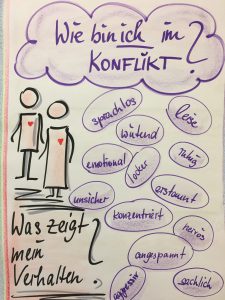 Wie bin ich im
KONFLIKT?
sprachlos
leise
wütend
emotional
locker
ruhig
unsicher
erstaunt
konzentriert
nervös
Was zeigt
mein
Verhalten?
angespannt
aggressiv
sachlich